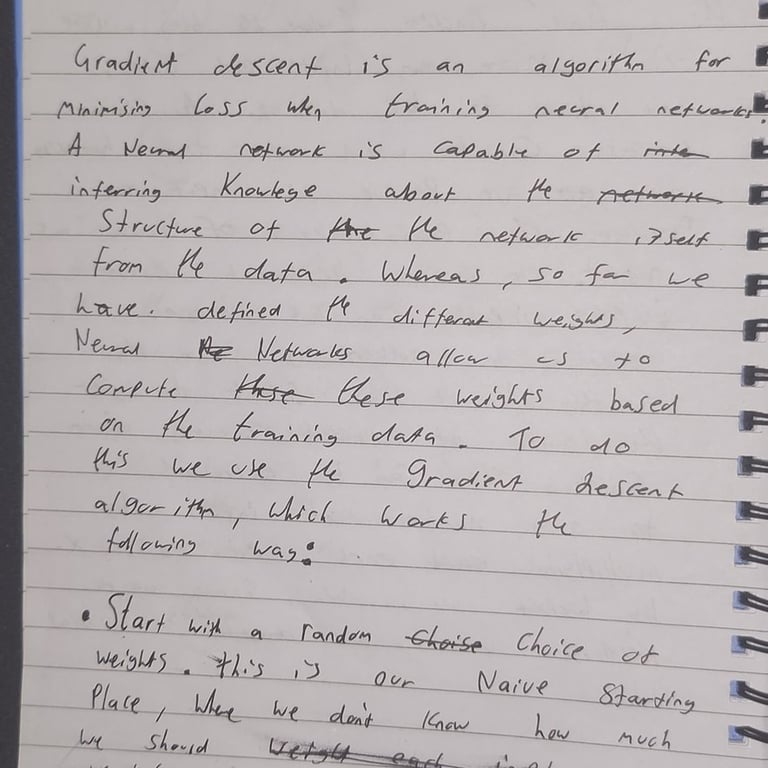 Gradient descent is an algorithm for
minimising loss when training neural networks.
A Neural network is capable of
inferring Knowlege about the network
Structure of the the network itself
from the data. Whereas, so far we
have. defined the different weights,
Neural Ne Networks allow us to
Compute these these weights based
on the training data. To do
this we use the gradient descent
algorithm, which works the
following way:
• Start with a random Choise Choice of
weights. this is our Naive Starting
Place, where we don't know how much
we should weight each